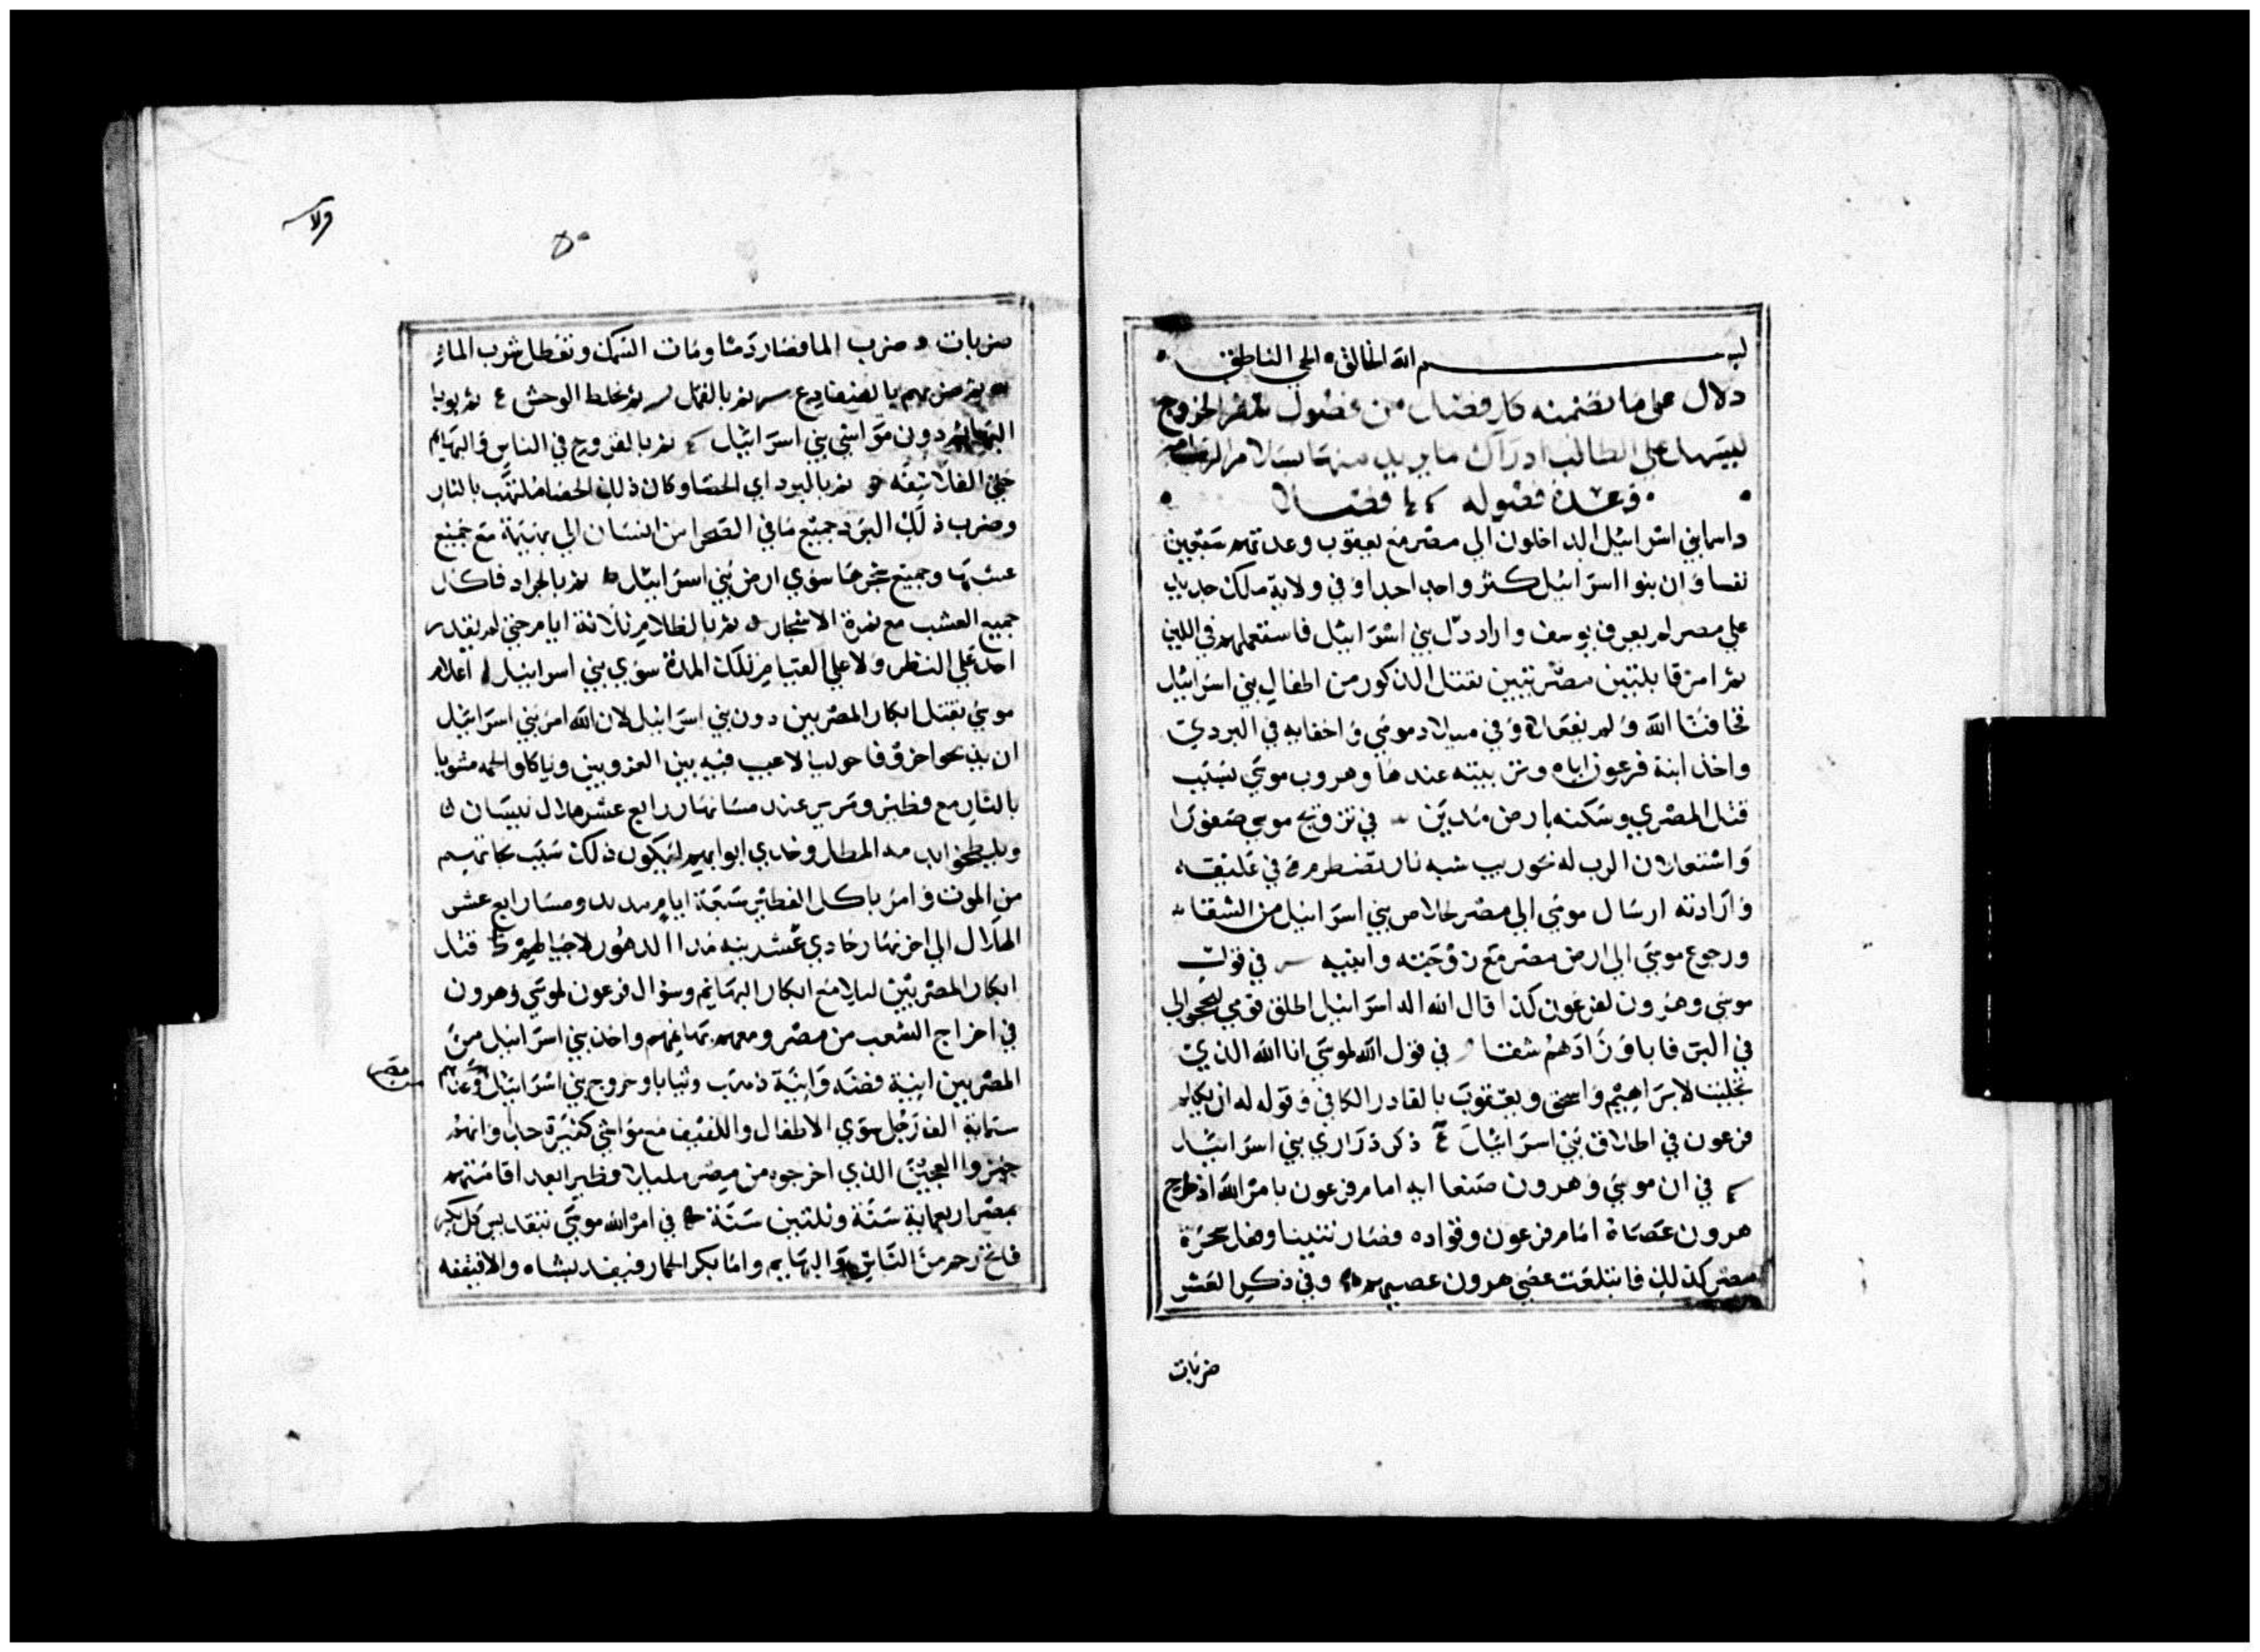 بسم الله الخالق الحي الناطق
دلال على ما تضمنه كل فصل من فصول سفر الخروج
ليسهل على الطالب ادراك ما يريد منها بسلام الرب امين
وعدة فصوله فصلا
واسما بني اسرائيل الداخلون الي مصر مع يعقوب وعدتهم سبعين
نفسا وان بنوا اسرائيل كثروا جدا جدا وفي ولاية ملك جديد
علي مصر لم يعرف يوسف واراد ذل بني اسرائيل فاستعملهم في اللبن
ثم امر قابلتين مصريتين بقتل الذكور من اطفال بني اسرائيل
فخافتا الله ولم يفعلا وفي ميلاد موسي واخفايه في البردي
واخذ ابنة فرعون اياه وتربيته عندها وهروب موسي بسبب
قتل المصري وسكنه بارض مدين في تزويج موسي صفورا
واشتعلان الرب له بحوريب شبه نار تضطرم في عليقه
وارادته ارسال موسي الي مصر لخلاص بني اسرائيل من الشقا
ورجوع موسي الي ارض مصر مع زوجته وابنيه في قول
موسي وهرون لفرعون كذا قال الله اله اسرائيل اطلق قومي ليحجوا لي
في البر فابا وزادهم شقا في قول الله لموسي انا الله الذي
تجليت لابراهيم واسحق ويعقوب بالقادر الكافي وقوله له ان يكلم
فرعون في اطلاق بني اسرائيل ذكر ذراري بني اسرائيل
في ان موسي وهرون صنعا ايه امام فرعون بامر الله اذ طرح
هرون عصاه امام فرعون وقواده فصار تنينا وفعل سحرة
مصر كذلك فابتلعت عصي هرون عصيهم وفي ذكر العشر
ضربات
ولا
ضربات ضرب الما فصار دما ومات السمك وتعطل شرب الما
ثم ضربهم بالضفادع ثم بالقمل ثم بخلط الوحش ثم بوبا
البهايم دون مواشي بني اسرائيل ثم بالقروح في الناس والبهايم
ثم بالبرد اي الحصا وكان ذلك الحصا ملتهب بالنار
وضرب ذلك البرد جميع ما في الصحرا من انسان الي بهيمة مع جميع
عشبها وجميع شجرها سوي ارض بني اسرائيل ثم بالجراد فاكل
جميع العشب مع ثمرة الاشجار ثم بالظلام ثلاثة ايام حتي لم يقدر
احد علي النظر ولا علي القيام تلك المدة سوي بني اسرائيل اعلام
موسي بقتل ابكار المصريين دون بني اسرائيل لان الله امر بني اسرائيل
ان يذبحوا خروفا حوليا لا عيب فيه بين الغروبين وياكلوا لحمه مشويا
بالنار مع فطير ومرير عند مسا نهار رابع عشر هلال نيسان
ويلطخوا بدمه المطل وخدي ابوابهم ليكون ذلك سبب نجاتهم
من الموت وامر باكل الفطير سبعة ايام ومسا رابع عشر
الهلال الي اخر نهار حادي عشرينه مدا الدهور لاجيالهم قتل
ابكار المصريين ليلا مع ابكار البهايم وسوال فرعون لموسي وهرون
في اخراج الشعب من مصر ومعهم بهايمهم واخذ بني اسرائيل من
المصريين انية فضه وانية ذهب وثيابا وخروج بني اسرائيل
من مصر
ستماية الف رجل سوي الاطفال واللفيف مع مواشي كثيرة جدا وانهم
خبزوا العجين الذي اخرجوه من مصر مليلا فطيرا بعد اقامتهم
بمصر اربعماية سنة وثلثين سنة في امر الله موسي بتقديس كل بكر
فاتح رحم من الناس والبهايم واما بكر الحمار فيفد بشاه والا فيقفه